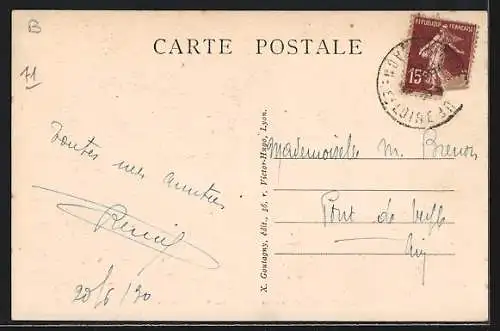 B
71
CARTE POSTALE
REPUBLIQUE FRANÇAISE
15
LOIRE
Toutes mes amitiés
20/6/30
X. Goutagny, édit., 36, r. Victor-Hugo, Lyon.
Mademoiselle M.
Pont de
Ain